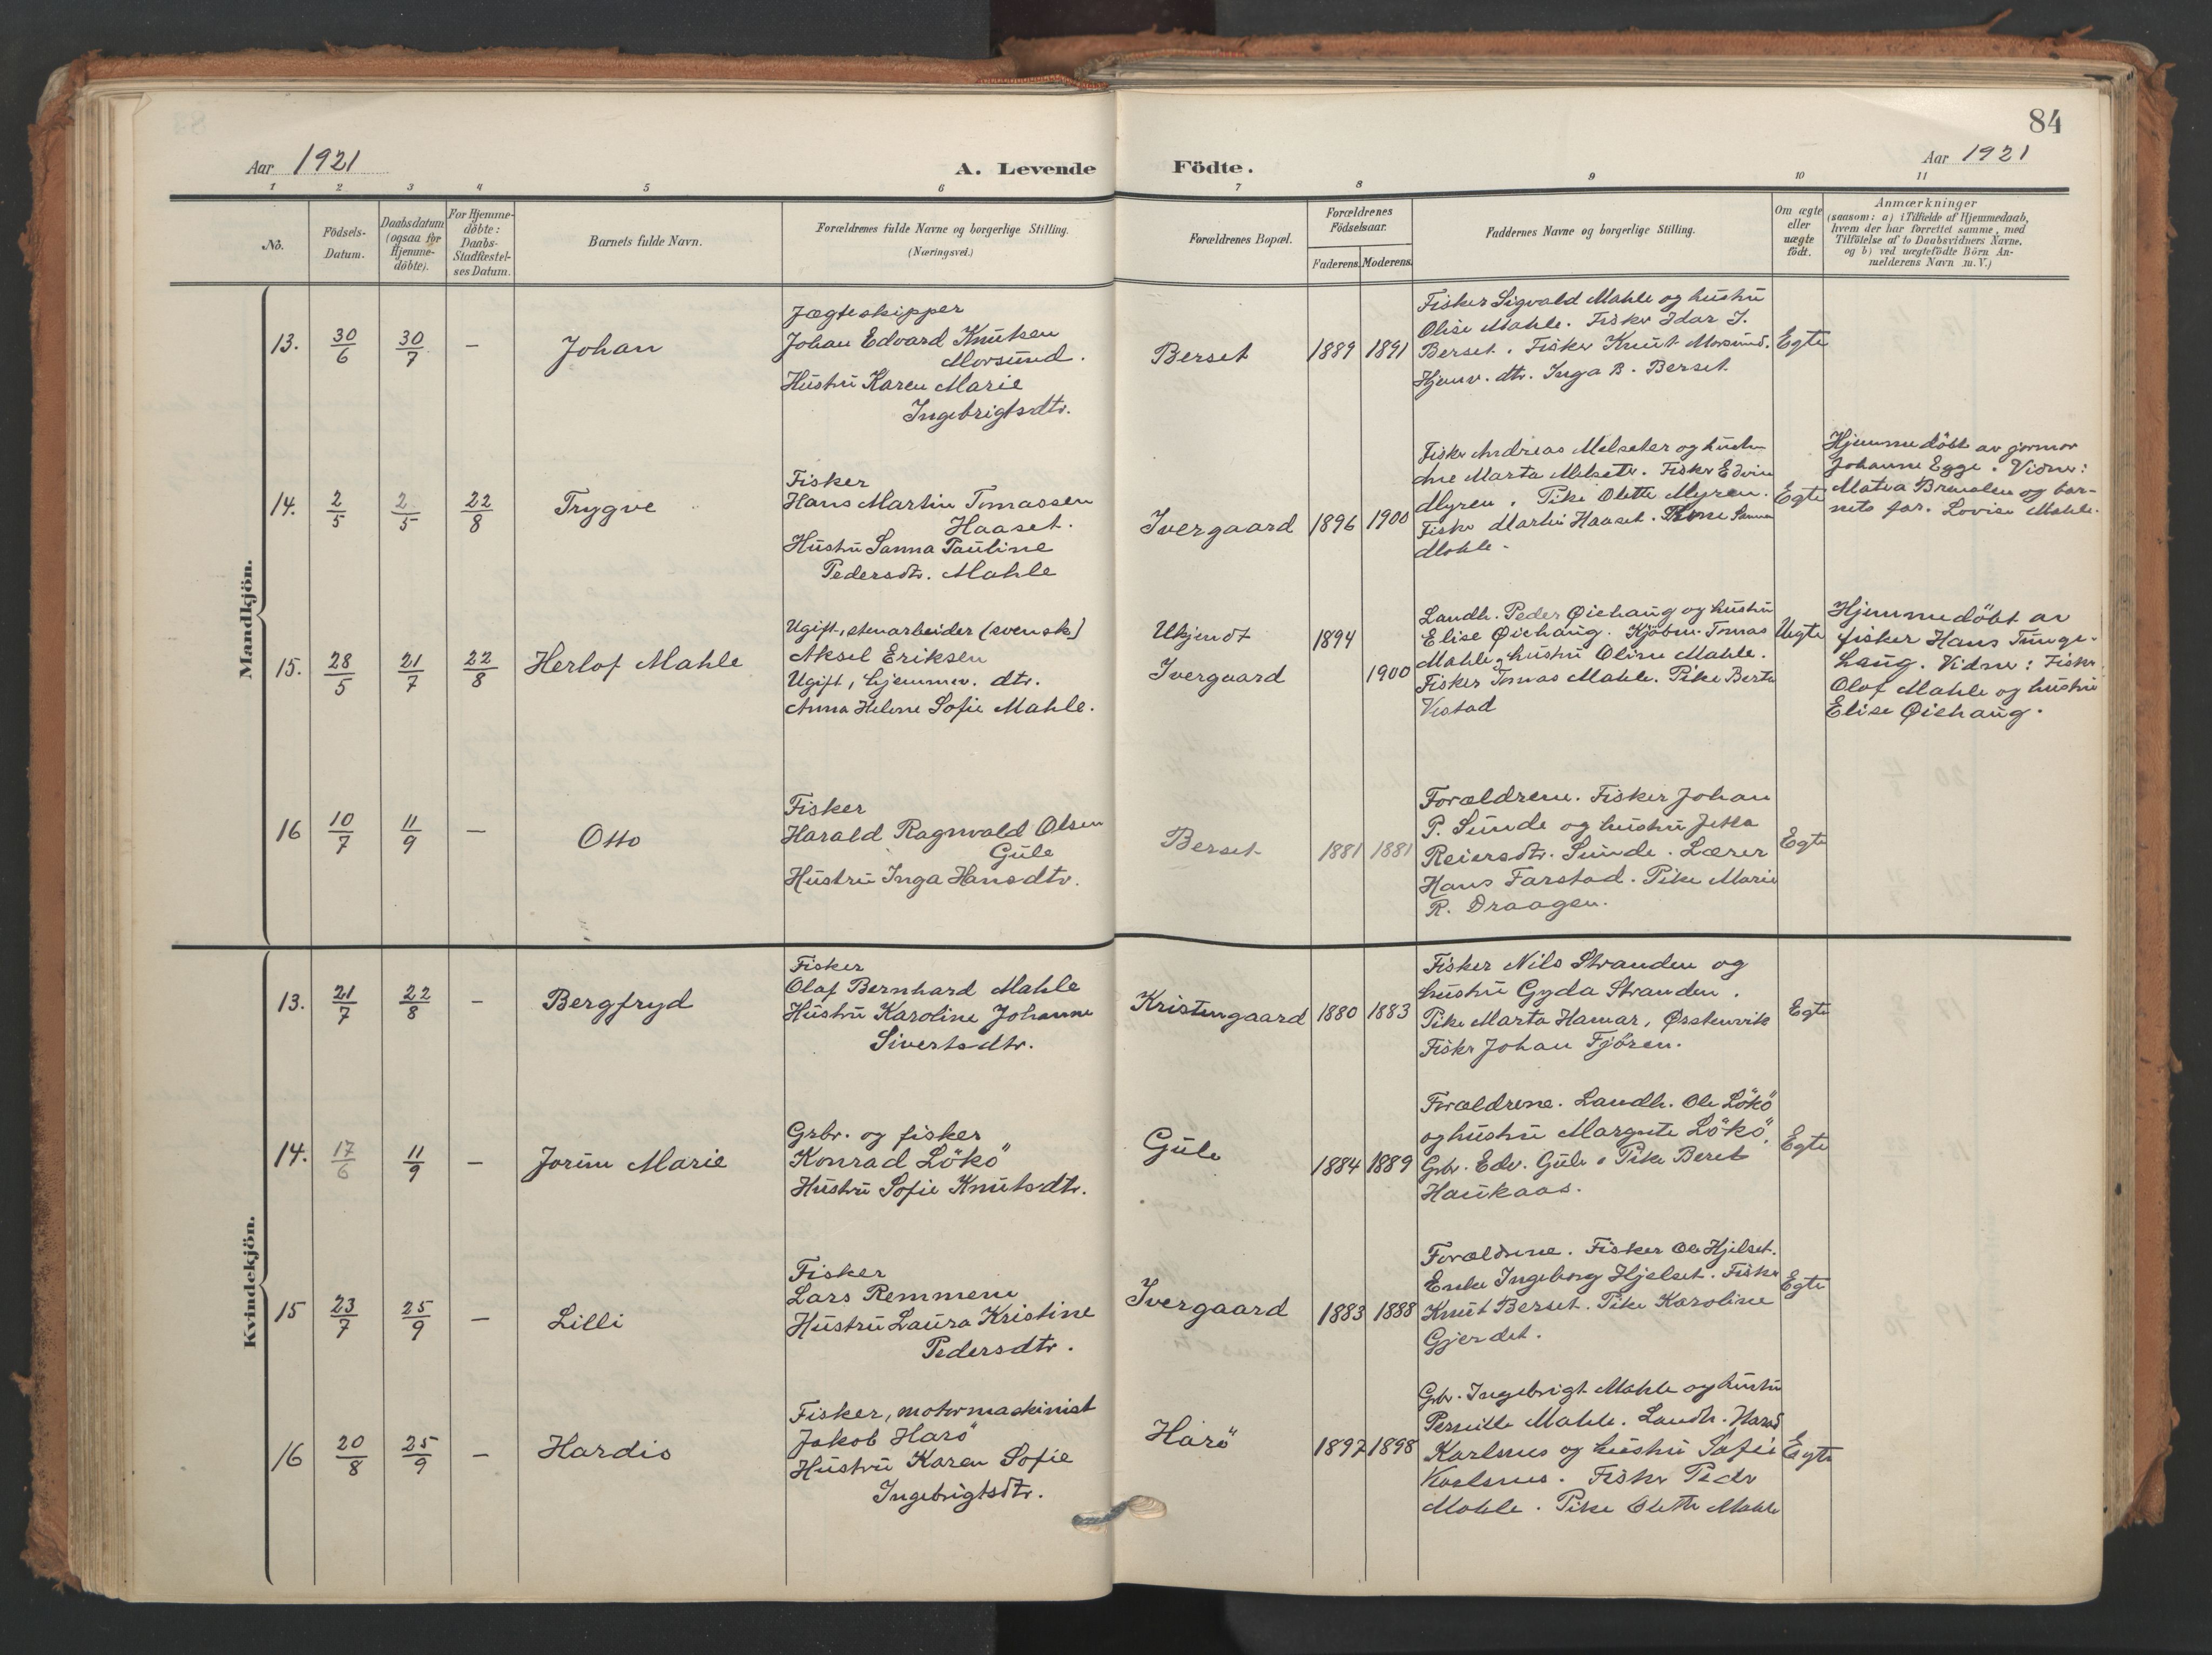 84
Aar 1921
A. Levende Födte.
Aar 1921
1 2 3 4 5 6 7 8 9 10 11
No.
Födsels-
Datum.
Daabsdatum
(ogsaa for
Hjemme-
döbte).
For Hjemme-
döbte:
Daabs-
Stadfæstel-
ses Datum.
Barnets fulde Navn.
Forældrenes fulde Navne og borgerlige Stilling.
(Næringsvei.)
Forældrenes Bopæl.
Forældrenes
Födselsaar.
Faderens. Moderens.
Faddernes Navne og borgerlige Stilling.
Om ægte
eller
uægte
födt.
Anmærkninger
(saasom: a) i Tilfælde af Hjemmedaab,
hvem der har forrettet samme, med
Tilföielse af to Daabsvidners Navne.
og b) ved uægtefödte Börn An-
melderens Navn m. V.)
Mandkjön.
13. 30/6 30/7 – Johan
Jægteskipper
Johan Edvard Knutsen
Morsund.
Hustru Karen Marie
Ingebrigtsdtr.
Berset 1889 1891
Fisker Sigvald Mahle og hustru
Olise Mahle. Fisker Idar J.
Berset. Fisker Knut Morsund.
Hjemv. dtr. Inga B. Berset.
Egte
14. 2/5 2/5 22/8 Trygve
Fisker
Hans Martin Tomassen
Haaset.
Hustru Sanna Pauline
Pedersdtr. Mahle
Ivergaard 1896 1900
Fisker Andreas Melseter og hustru
Marta Melseter. Fisker Edvin
Myren. Pike Olette Myren.
Fisker Martin Haaset.
Mahle.
Egte
Hjemmedöbt av jormor
Johanne Egge. Vidner:
og bar-
nets far. Lovise Mahle.
15. 28/5 21/7 22/8 Herlof Mahle
Ugift, stenarbeider (svensk)
Aksel Eriksen
Ugift, hjemmev. dtr.
Anna Helene Sofie Mahle.
Ukjendt 1894
Ivergaard 1900
Landh. Peder Øiehaug og hustru
Elise Øiehaug. Kjöbm. Tomas
Mahle, hustru Oline Mahle.
Fisker Tomas Mahle. Pike Berte
Vestad
Uegte
Hjemmedöbt av
fisker Hans Tunge-
haug. Vidner: Fisker
Olof Mahle og hustru
Elise Øiehaug.
16 10/7 11/9 – Otto
Fisker
Harald Ragnvald Olsen
Gule
Hustru Inga Hansdtr.
Berset 1881 1881
Forældrene. Fisker Johan
P. Sunde og hustru Jetta
Reiersdtr. Sunde. Lærer
Hans Farstad. Pike Marie
R. Draagen.
Egte
Kvindekjön.
13. 21/7 22/8 – Bergfryd
Fisker
Olaf Bernhard Mahle
Hustru Karoline Johanne
Sivertsdtr.
Kristengaard 1880 1883
Fisker Nils Stranden og
hustru Gyda Stranden.
Pike Marta Hamar, Ørstenvik
Fisker Johan Fjören.
Egte
14. 17/6 11/9 – Jorun Marie
Grbr. og fisker
Konrad Lökö
Hustru Sofie Knutsdtr.
Gule 1884 1889
Forældrene. Landh. Ole Lökö
og hustru Margrete Lökö,
Grbr. Edv. Gule. Pike Beret
Haukaas.
Egte
15 23/7 25/9 – Lilli
Fisker
Lars Remmem
Hustru Laura Kristine
Pedersdtr.
Ivergaard 1883 1888
Forældrene. Fisker Ole Hjelset.
Enke Ingeborg Hjelset. Fisker
Knut Berset. Pike Karoline
Gjerdet.
Egte
16 20/8 25/9 – Hardis
Fisker, motormaskinist
Jakob Harö
Hustru Karen Sofie
Ingebrigtsdtr.
Harö 1897 1898
Grbr. Ingebrigt Mahle og hustru
Pernille Mahle. Landh. Harald
Karlsnes og hustru Sofie
Karlsnes. Fisker Peder
Mahle. Pike Olette Mahle
Egte